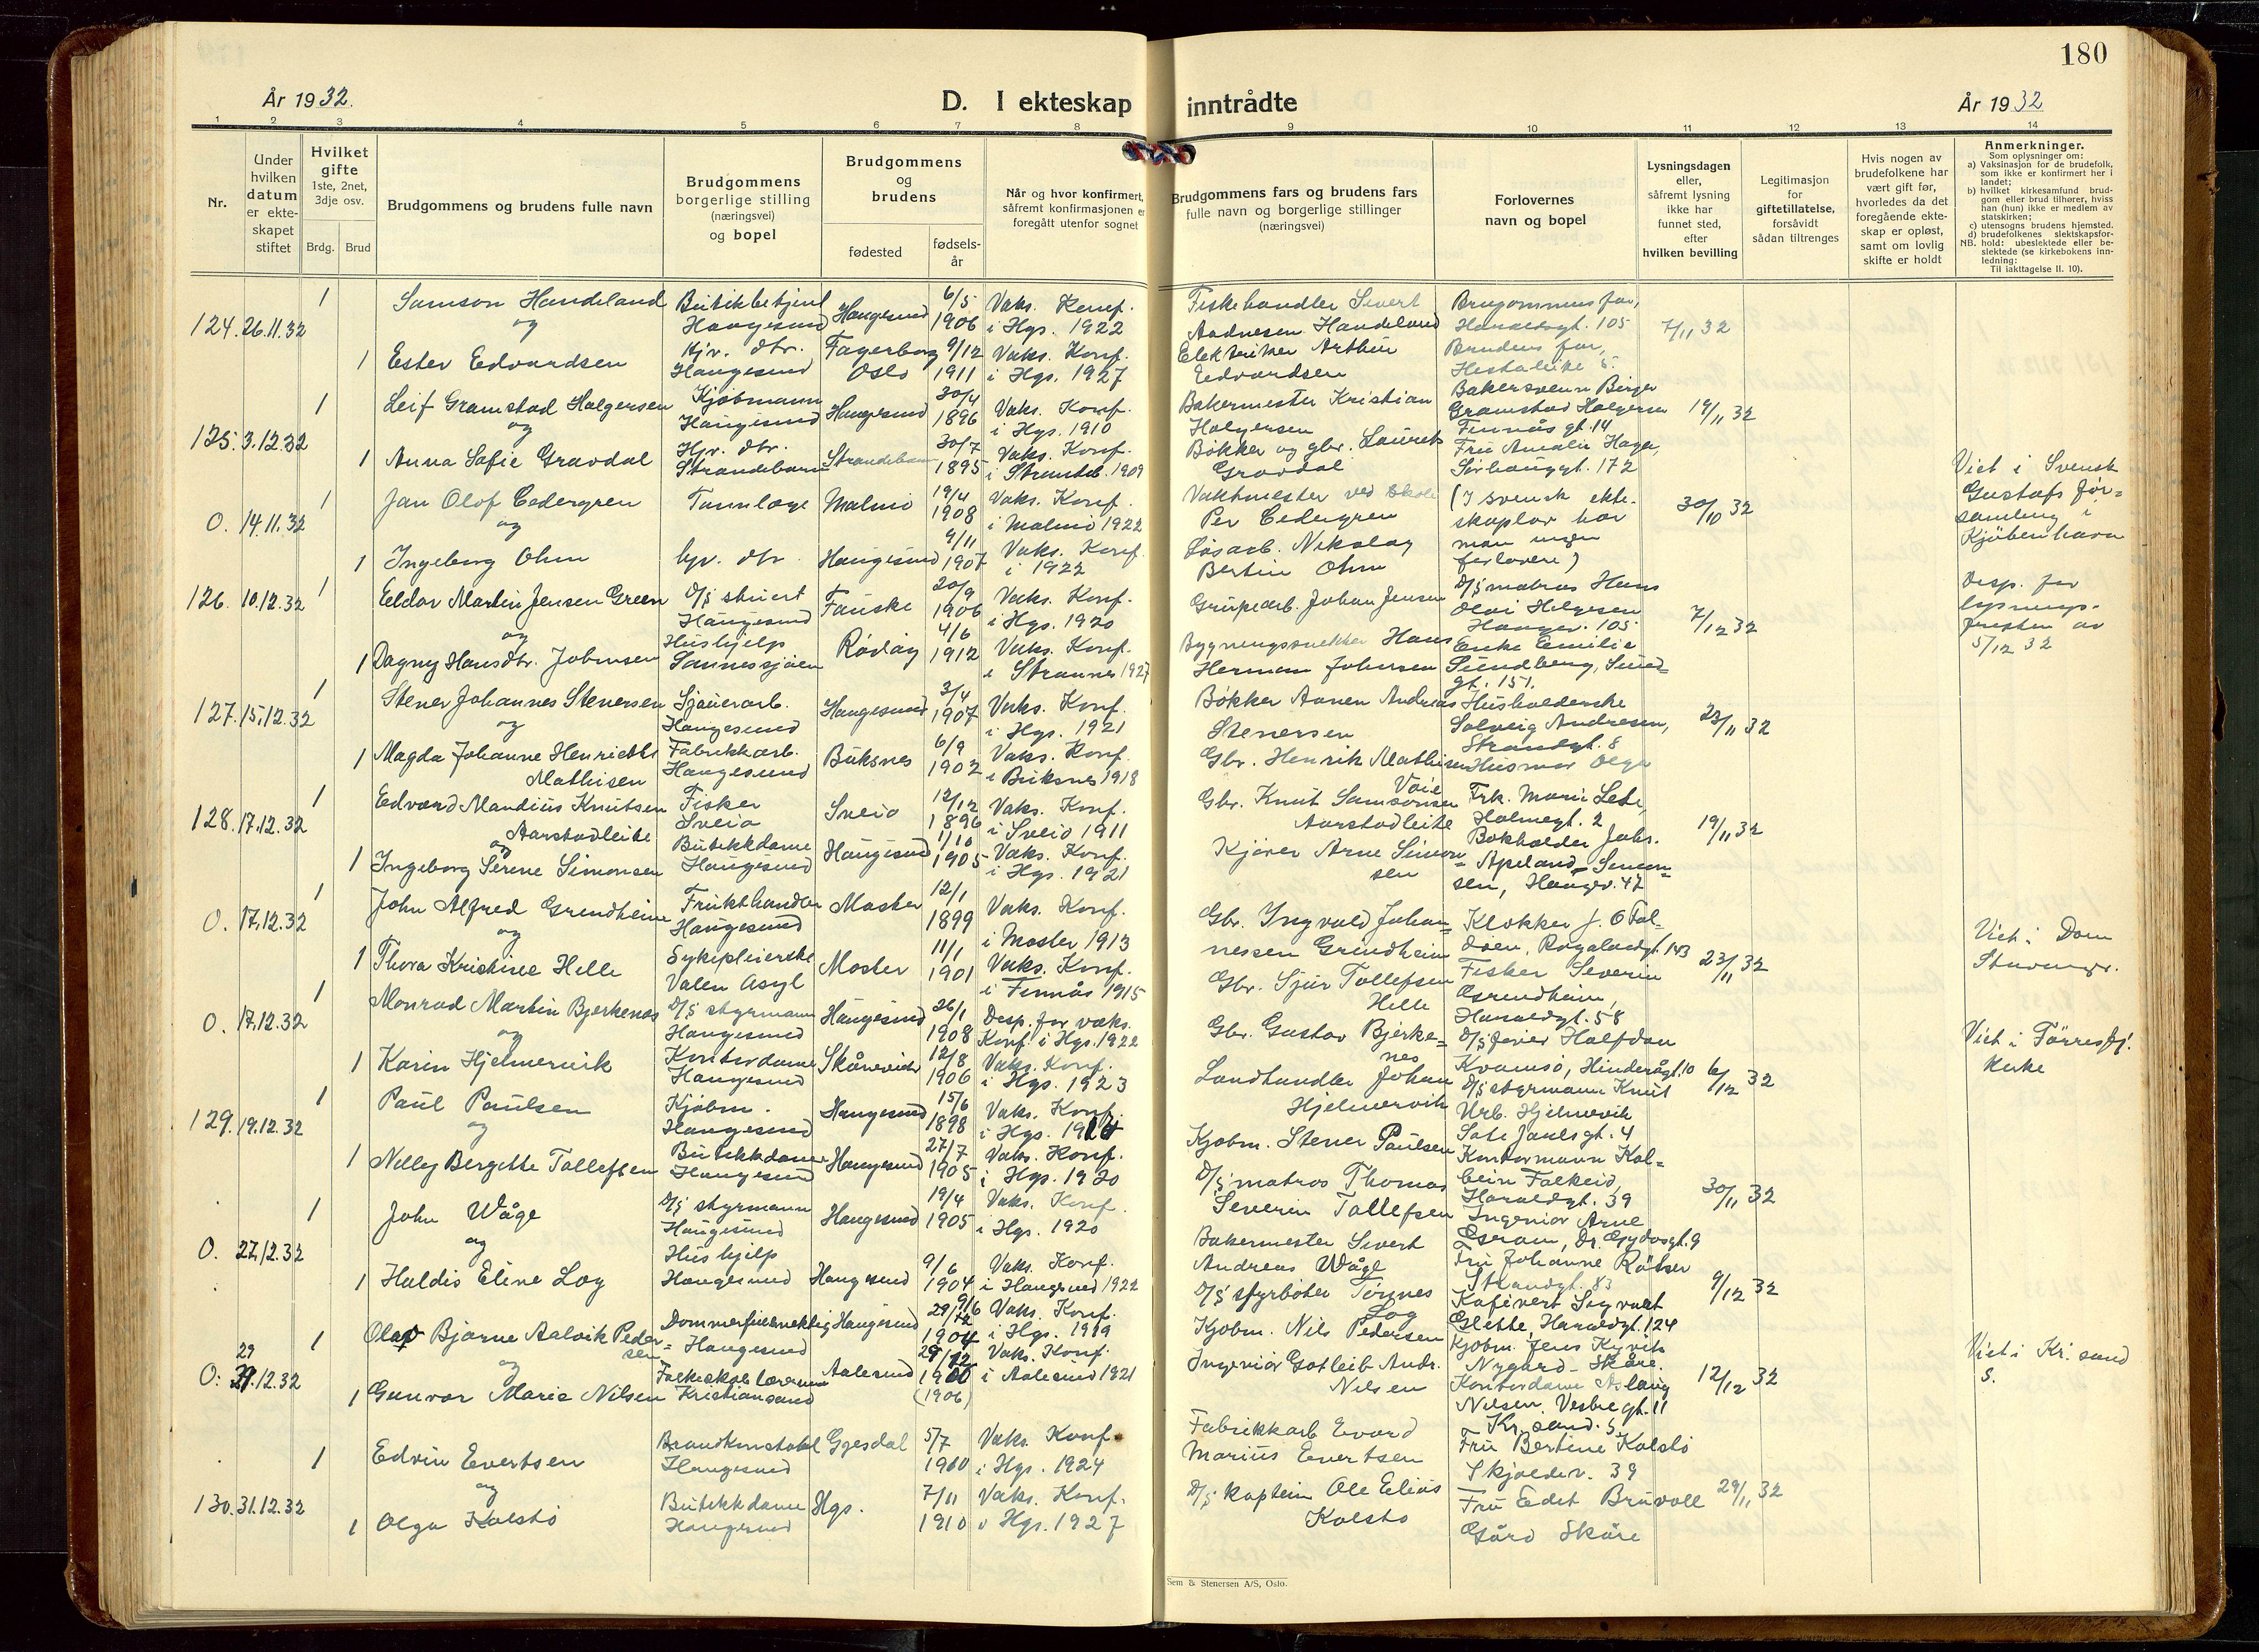 180
År 1932.
D. I ekteskap inntrådte
År 1932
1 2 3 4 5 6 7 8 9 10 11 12 13 14
Nr.
Under hvilken datum er ekteskapet stiftet
Hvilket gifte
1ste, 2net, 3dje osv.
Brdg. Brud
Brudgommens og brudens fulle navn
Brudgommens borgerlige stilling (næringsvei) og bopel
Brudgommens og brudens
fødested
fødselsår
Når og hvor konfirmert, såfremt konfirmasjonen er foregått utenfor sognet
Brudgommens fars og brudens fars fulle navn og borgerlige stillinger (næringsvei)
Forlovernes navn og bopel
Lysningsdagen eller, såfremt lysning ikke har funnet sted, efter hvilken bevilling
Legitimasjon for giftetillatelse, forsåvidt sådan tiltrenges
Hvis nogen av brudefolkene har vært gift før, hvorledes da det foregående ekteskap er opløst, samt om lovlig skifte er holdt
Anmerkninger.
Som oplysninger om:
a) Vaksinasjon for de brudefolk, som ikke er konfirmert her i landet;
b) hvilket kirkesamfund brudgom eller brud tilhører, hviss han (hun) ikke er medlem av statskirken;
c) utensogns brudens hjemsted.
d) brudefolkenes slektskapsforhold: ubeslektede eller beslektede (se kirkebokens innledning:
NB.
Til iakttagelse II. 10).
124. 26.11.32
1 Samson Handeland Butikbetjent Haugesund Haugesund 6/5 1906 Vaks. Konf. i Hgs. 1922
Fiskehandler Sivert Aadnesen Handeland
Brugommens far, Haraldsgt. 105
7/11 32
og
1 Ester Edvardsen Hjv. dtr. Haugesund Fagerborg Oslo 9/12 1911 Vaks. Konf. i Hgs. 1927
Elektriker Arthur Edvardsen
Brudens far,
125. 3.12.32
1 Leif Gramstad Halgersen Kjøbmann Haugesund Haugesund 30/4 1896 Vaks. Konf. i Hgs. 1910
Bakermester Kristian Holgersen
Bakersvenn Birger Gramstad Holgersen Finnås gt. 14
19/11 32
og
1 Anna Sofie Gravdal Hjv. dtr. Strandebarm Strandebarm 30/7 1895 Vaks. Konf. i Strandeb. 1909
Bøkker og gbr. Laurits Gravdal
Fru Amalie Hagen, Sørhauggt. 172
O. 14.11.32
1 Jan Olof Cedergren Tannlæge Malmö 19/4 1908 Vaks. Konf. i Malmö 1922
Vaktmester ved skole Per Cedergren
(I svensk ekteskaplov har man ingen forlovere)
30/10 32
Viet i Svensk Gustafs församling i Kjöbenhavn
og
1 Ingeborg Ohm hjv. dtr. Haugesund 9/11 1907 Vaks. Konf. i 1922
Løsarb. Nikolay Bertin Ohm
126. 10.12.32
1 Eldor Martin Jensen Green D/S stuert Haugesund Fauske 20/9 1906 Vaks. Konf. i Hgs. 1920
Grubearb. Johan Jensen
D/S matros Hans Olai Helgesen Haugev. 105
7/12 32
Disp. for lysningsfristen av 5/12 32
og
1 Dagny Hansdtr. Johnsen Hushjelp Sannessjøen Rødøy 4/6 1912 Vaks. Konf. i Stamnes 1927
Bygningssnekker Hans Herman Johnsen
Enke Emilie Sundberg, Sundgt. 151.
127. 15.12.32
1 Stener Johannes Stenersen Sjauerarb. Haugesund Haugesund 3/4 1907 Vaks. Konf. i Hgs. 1921
Bøkker Aanen Andreas Stenersen
Husholderske Solveig Andresen, Strandgt. 8
23/11 32
og
1 Magda Johanne Henriette Mathisen Fabrikkarb. Haugesund Buksnes 6/9 1902 Vaks. Konf. i Buksnes 1918
Gbr. Henrik Mathisen
Husmor Olga Vaie
128. 17.12.32
1 Edvard Mandius Knutsen Aarstadleite Fisker Sveio Sveio 12/12 1896 Vaks. Konf. i Sveio 1911
Gbr. Knut Samsonsen Aarstadleite
Frk. Marie Lete, Holmegt. 2
19/11 32
og
1 Ingeborg Serene Simonsen Butikkdame Haugesund Haugesund 1/10 1905 Vaks. Konf. i Hgs. 1921
Kjører Arne Simonsen
Bokholder Johs. Apeland Simonsen, Haugev. 47
O. 17.12.32
1 John Alfred Grindheim Frukthandler Haugesund Moster 12/1 1899 Vaks. Konf. i Moster 1913
Gbr. Yngvald Johannessen Grindheim
Klokker J. O. Føldøen, Rogalandgt. 143
23/11 32
Viet i Dom Stavanger.
og
1 Thora Kristine Helle Sykepleierske Valen Asyl Moster 11/1 1901 Vaks. Konf. i Finnås 1915
Gbr. Sjur Tollefsen Helle
Fisker Severin Grindheim, Haraldsgt. 58
O. 17.12.32
1 Monrad Martin Bjerkenes D/S styrmann Haugesund Haugesund 26/1 1908 Disp. for vaks. Konf. i Hgs. 1922
Gbr. Gustav Bjerkenes
D/S fører Halfdan Kvamsø, Hinderågt. 10
6/12 32
Viet i Førresfj. kirke
og
1 Karin Hjelmervik Kontordame Haugesund Skånevik 12/8 1906 Vaks. Konf. i Hgs. 1923
Landhandler Johan Hjelmervik
D/S styrmann Knut Urb. Hjelmervik
129. 19.12.32
1 Paul Paulsen Kjøbm. Haugesund Haugesund 15/6 1898 Vaks. Konf. i Hgs. 1914
Kjøbm. Stener Paulsen
Kontormann Kolbein Falkeid, Haraldsgt. 39
30/11 32
og
1 Nelly Bergitte Tollefsen Butikkdame Haugesund Haugesund 27/7 1905 Vaks. Konf. i Hgs. 1920
D/S matros Thomas Severin Tollefsen
Ingeniør Arne
O. 27.12.32
1 John Wåge D/S styrmann Haugesund Haugesund 19/4 1905 Vaks. Konf. i Hgs. 1920
Bakermester Sivert Andreas Wåge
Fru Johanne Strandgt. 83
9/12 32
og
1 Haldis Eline Log Hushjelp Haugesund Haugesund 9/6 1904 Vaks. Konf. i Haugesund 1922
D/S fyrbøter Tønnes Log
Kafévert Sigvart Glette, Haraldsgt. 124
O. 29.12.32
1 Olav Bjarne Aalvik Pedersen Dommerfullmektig Haugesund Haugesund 1904 Vaks. Konf. i Hgs. 1919
Kjøbm. Nils Pedersen
Kjøbm. Jens Kyvik Nygård - Skåre.
12/12 32
Viet i Kr. sand S.
og
1 Gunvor Marie Nilsen Folkeskolelærerinne Kristiansand Aalesund (1906) Vaks. Konf. i Aalesund 1921
Ingeniør Gotleib Andr. Nilsen
Kontordame Aslaug Nilsen, Vestregt. 11 Kr. sand. S.
130. 31.12.32
1 Edvin Evertsen Brandkonstabel Haugesund Gjesdal 5/7 1910 Vaks. Konf. i Hgs. 1924
Fabrikkarb. Evard Marius Evertsen
Fru Bertine Kolstø Skjoldev. 39
29/11 32
og
1 Olga Kolstø Butikkdame Haugesund Hgs. 7/11 1910 Vaks. Konf. i Hgs. 1927
D/S kaptein Ole Elias Kolstø
Fru Edit Bruvoll Gård Skåre
Sem & Stenersen A/S, Oslo.